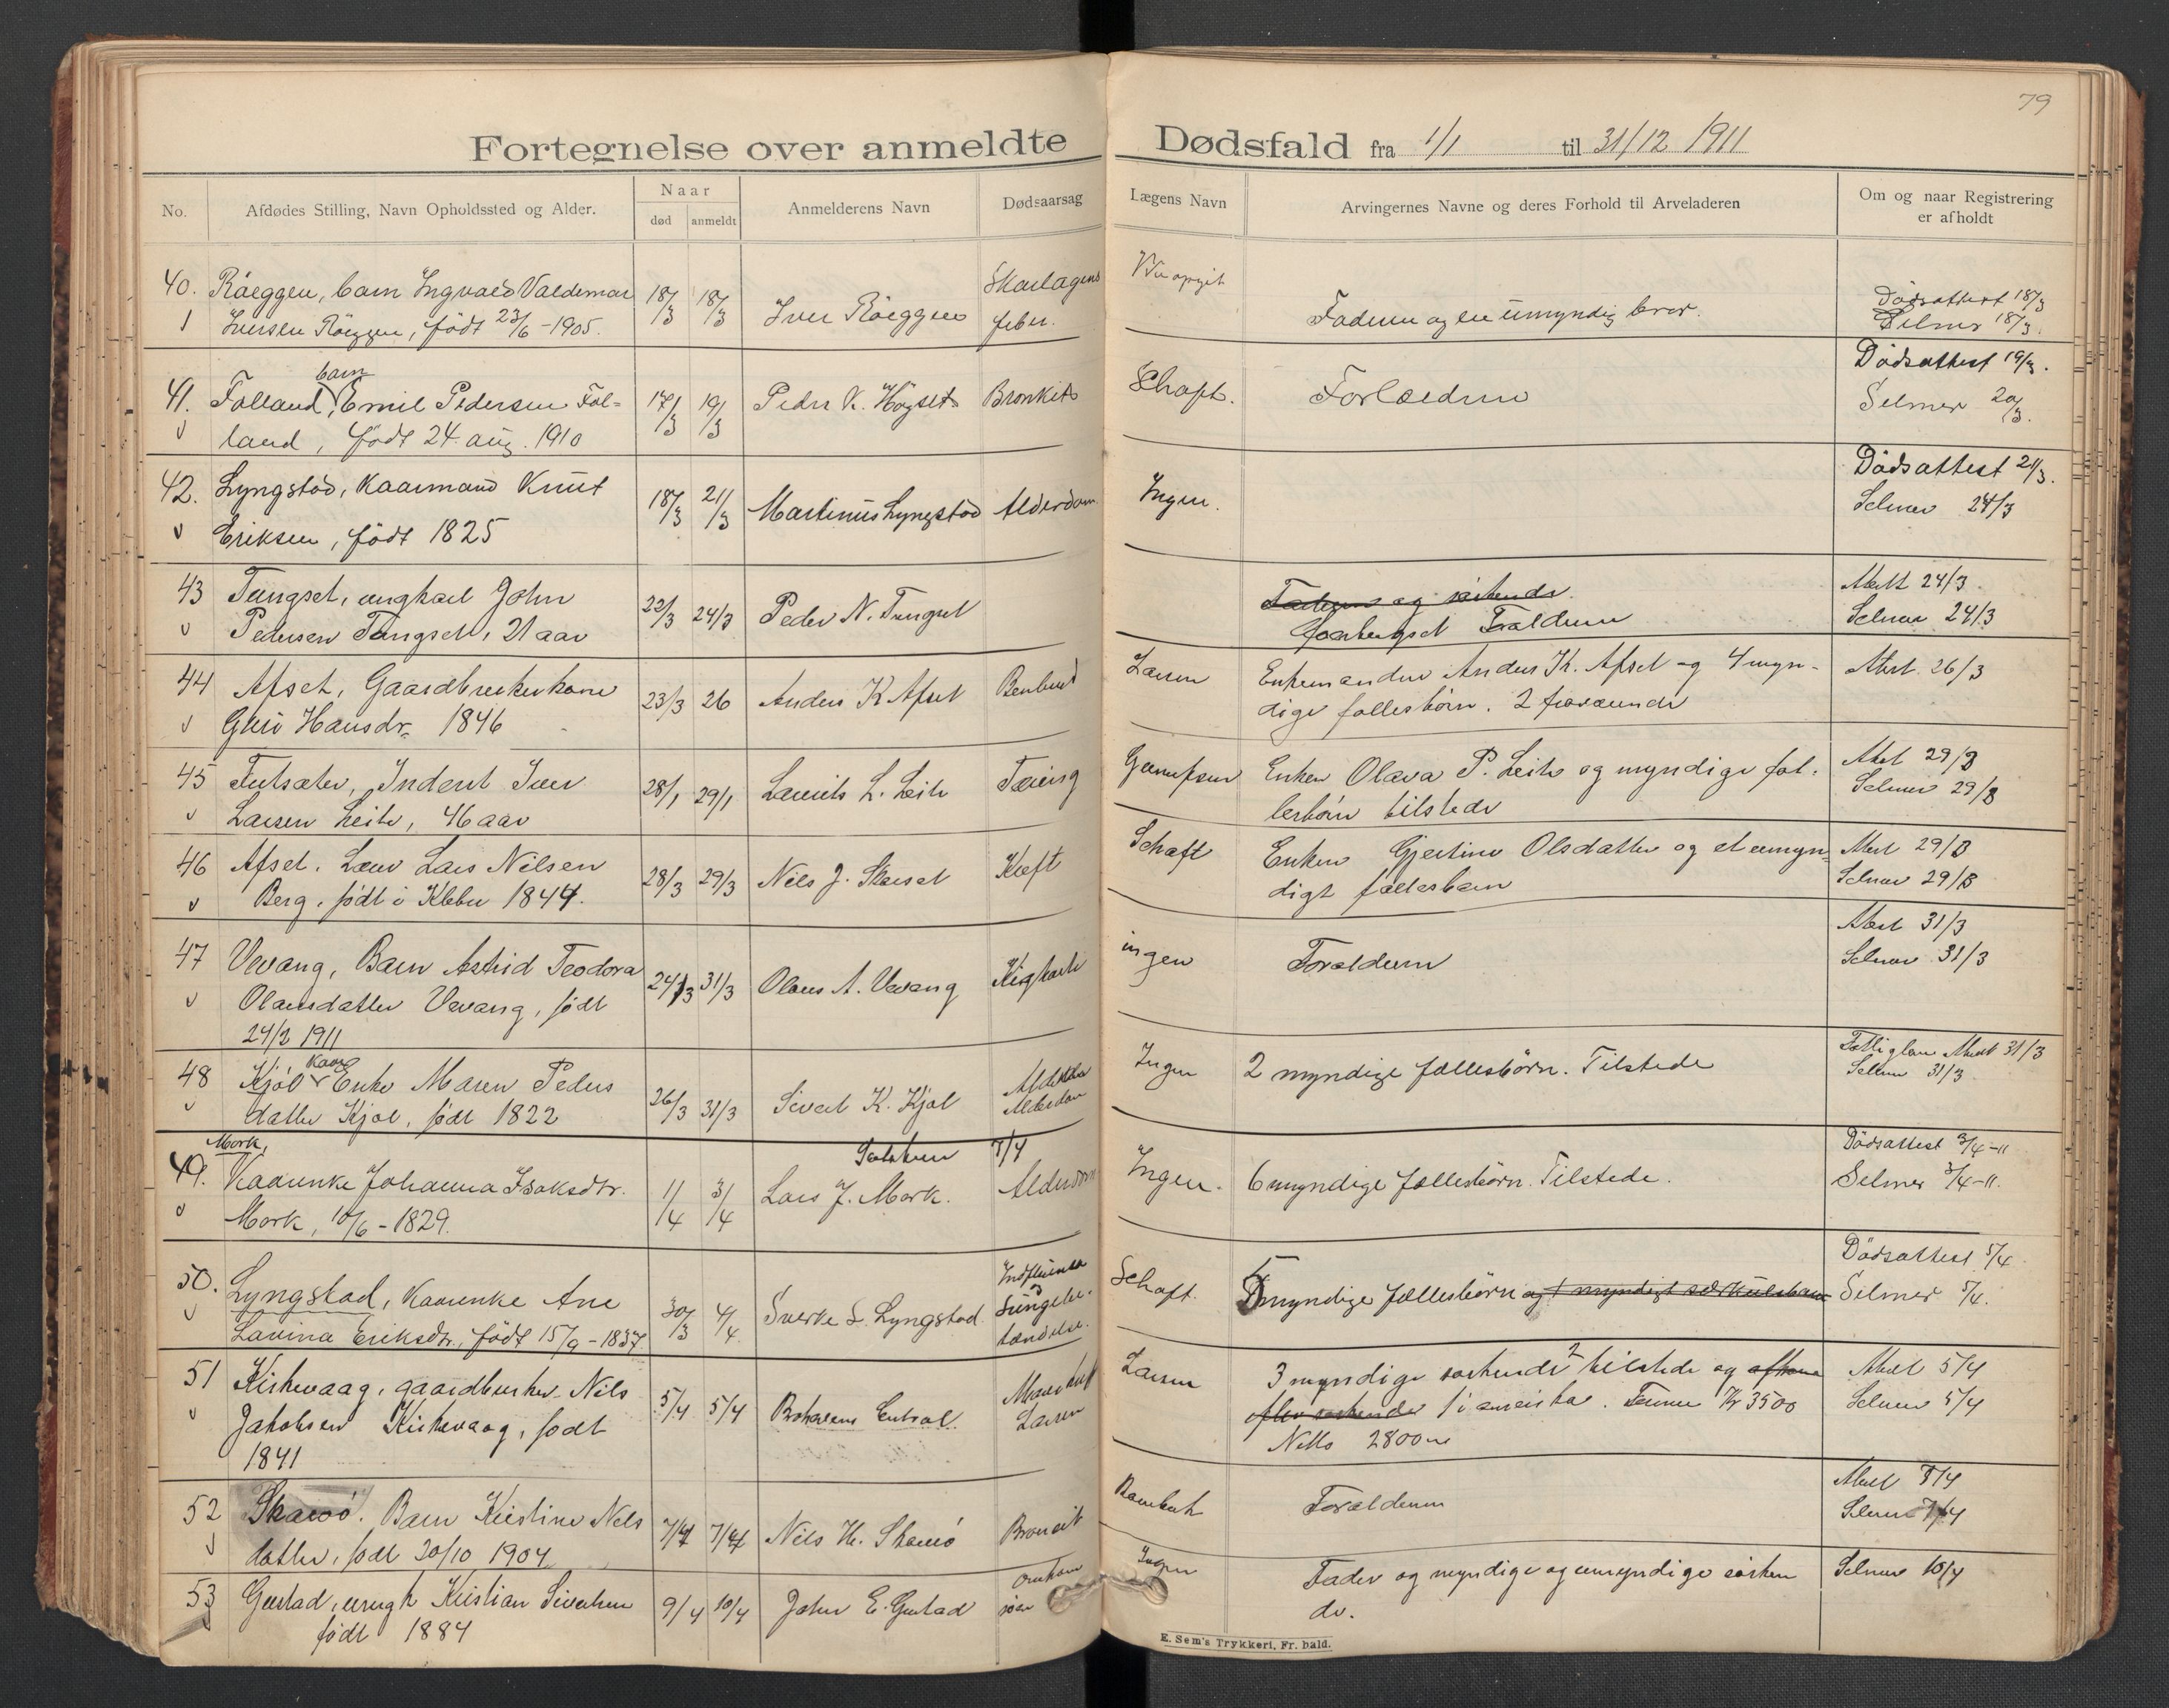 79
Fortegnelse over anmeldte Dødsfald fra 1/1 til 31/12 1911
No.
Afdødes Stilling, Navn Opholdssted og Alder.
Naar
død
anmeldt
Anmelderens Navn
Dødsaarsag
Lægens Navn
Arvingernes Navne og deres Forhold til Arveladeren
Om og naar Registrering
er afholdt
40. Röeggen, barn Ingvald Valdemar
Iversen Röeggen, född 23/6 - 1905.
18/3 18/3 Iver Röeggen
Skarlagens
feber.
Faderen og en umyndig bror.
Dödsattest 18/3
Selmer 18/3.
barn
41. Folland, Emil Pedersen Fol-
land, född 24. aug. 1910
17/3 19/3 Peder K. Högset Bronkit
Schaft.
Forældrene
Dödsattest 19/3.
Selmer 20/3.
42. Lyngstad, Kaarmand Knut
Eriksen, född 1825
18/3 21/3 Martinus Lyngstad Alderdom
Ingen.
Dödsattest 21/3.
Selmer 24/3
43 Tungset, ungkarl John
Pedersen Tungset, 21 aar
22/3 24/3 Peder N. Tungset
Faderen og söskende.
Forældrene
Attest 24/3
Selmer 24/3
44 Afset, Gaardbrukerkone
Guri Hansdr. 1846
23/3 26 Anders K Afset Benbrud
Larsen
Enkemanden Anders K. Afset og 4 myn-
dige fællesbörn. 2 fraværende
Attest 26/3
45 Futsæter, Inderst Iver
Larsen Leite, 46 aar
28/1 29/1 Laurits L. Leite Tæring
Enken Olava P. Leite og myndige fæl-
lesbörn tilstede
Attest 29/3
Selmer 29/3
46 Afset. Lars Nilsen
Berg, född i Klæbu 1844.
28/3 29/3 Nils J. Skarset Kræft
Schaft
Enken Gjertine Olsdatter og et umyn-
digt fællesbarn
Attest 29/3
Selmer 29/3
47 Vevang, Barn Astrid Teodora
Olausdatter Vevang, född
24/2 1911
24/3 31/3 Olaus A. Vevang Kighoste
ingen
Forældrene
Attest 31/3
Selmer 31/3
Kaar
48 Kjöl Enke Maren Peders
datter Kjöl, född 1822
26/3 31/3 Sivert K. Kjöl
Alderdom
Ingen
2 myndige fællesbörn. Tilstede
Attest 31/3
Selmer 31/3
Mork,
49. Kaarenke Johanna Isaksdtr.
Mork, 10/6 - 1829.
1/4 3/4 Lars J. Mork. Alderdom
7/4
Ingen.
6 myndige fællesbörn. Tilstede.
Dödsattest 3/4-11
Selmer 3/4-11.
50. Lyngstad, Kaarenke Ane
Lavina Eriksdr., född 15/9 - 1837
30/3 4/4 Sverke S. Lyngstad.
Indfluensa
og
Lungebe-
tændelse.
Schaft.
5 myndige fællesbörn og 1 myndigt særkulsbarn
Dödsattest 5/4
Selmer 5/4.
51 Kirkevaag, gaardbruker Nils
Jakobsen Kirkevaag, född
1841
5/4 5/4
Larsen
Larsen
3 myndige söskende 2 tilstede og
1 i amerika. Kr 3500
Netto 2800
Attest 5/4
Selmer 5/4
52 Skarsö. Barn Kristine Nels
datter, född 20/10 1904
7/4 7/4 Nils H. Skarsö Bronkit
Forældrene
Attest 7/4
Selmer 7/4
53 Gustad, ungk Kristian Sivertsen
född 1884
9/4 10/4 John E. Gustad
Ingen
Fader og myndige og umyndige sösken
de.
Selmer 10/4
E. Sem's Trykkeri, Fr.hald.